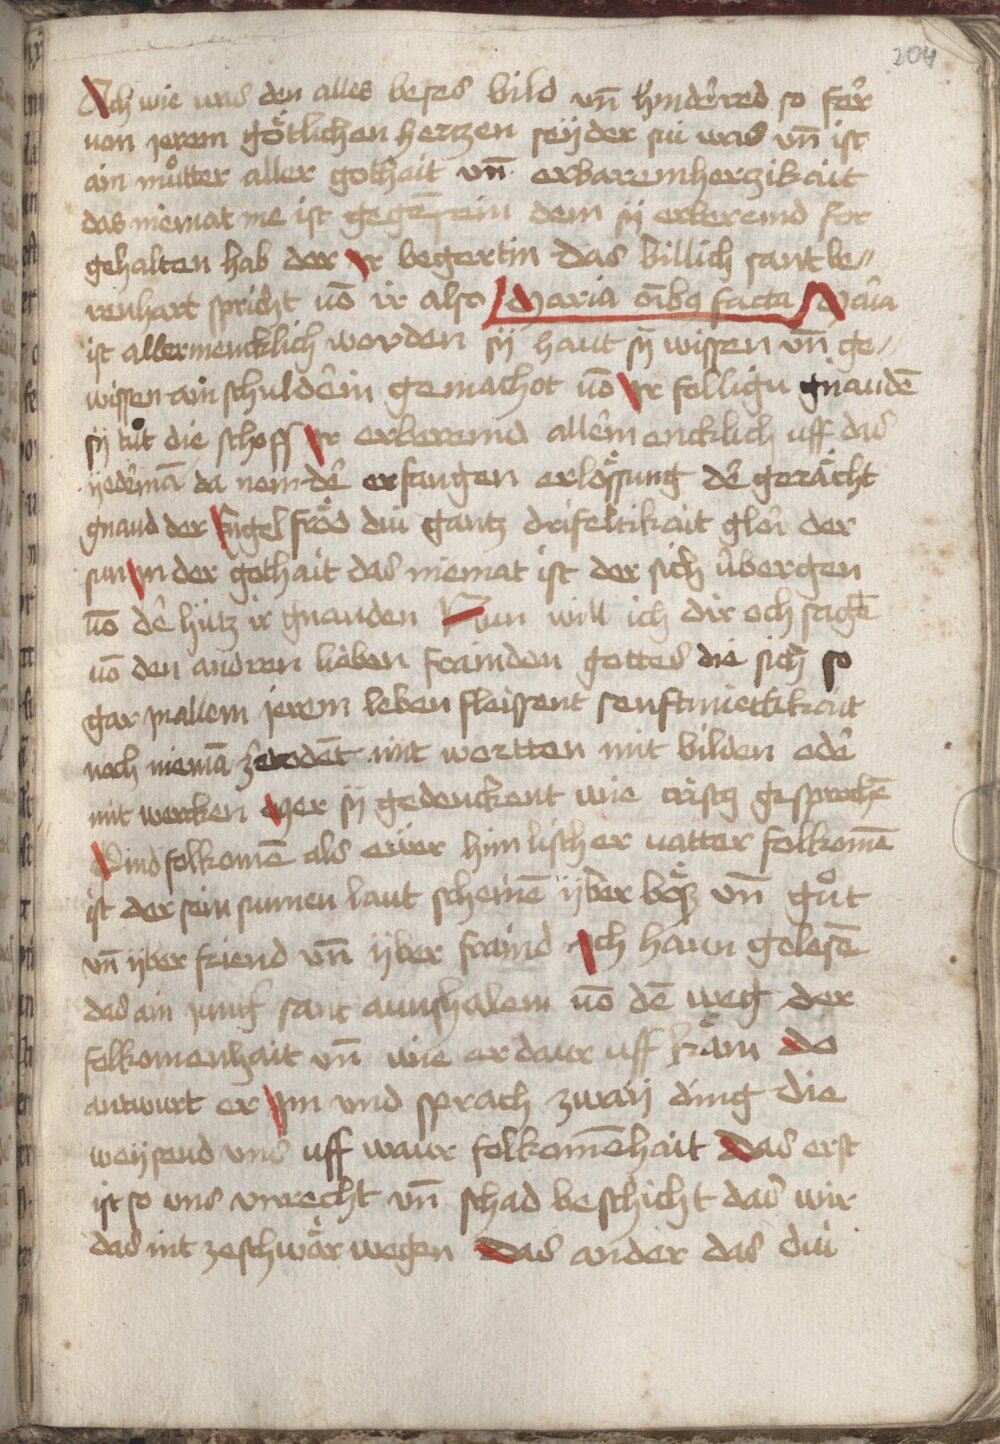 204
Ach wie was den alles beses bild vñ hinderred so fer
von jerem götlichen hertzen seyder sui was vñ ist
ain muͦtter aller gothait vñ erbaremhertzikait
das niemat me ist gegē sein dem sÿ erberemd for
gehalten hab der Ir begertin das billich sant be〃
renhart spricht uō ir also Maria oībꝯ facta Maria
ist allermencklich worden sÿ haut sÿ wissen vñ ge〃
wissen ain schulderin gemachot uō Ir folligu gnaudē
sÿ tuͦt die schoss Ir erberemd allermencklich uff das
yederma da nem der erfangen erlössung der gerächt
gnaud der Engel fröd dui gantz drifeltikait glori der
sun In der gothait das niemat ist der sich übergen
uō der hütz ir gnauden Nun will ich dir och sagē
uō den andren lieben frainden gottes die sich so
gar In allem jerem leben fleissent senftmietikait
noch niemā ze todent mit wortten mit bilden oder
mit wercken Mer sÿ gedenckent wie cristꝯ gesprochē
Sind folkomē als eüwer himlischer vatter folkomē
ist der sein sunnen laut scheinē ÿber bös vñ guͦt
vñ ÿber friend vñ ÿber fraind Ich haun gelesē
das ain jungʼ sant aunshalem uō dē weg der
folkomenhait vñ wie er daur uff käm do
antwurt er Im vnd sprach zwaÿ ding die
weÿsend uns uff waur folkomēhait Das erst
ist so uns vnrecht vñ schad beschicht das wir
das nit ze schwär wegen Das ander das dui